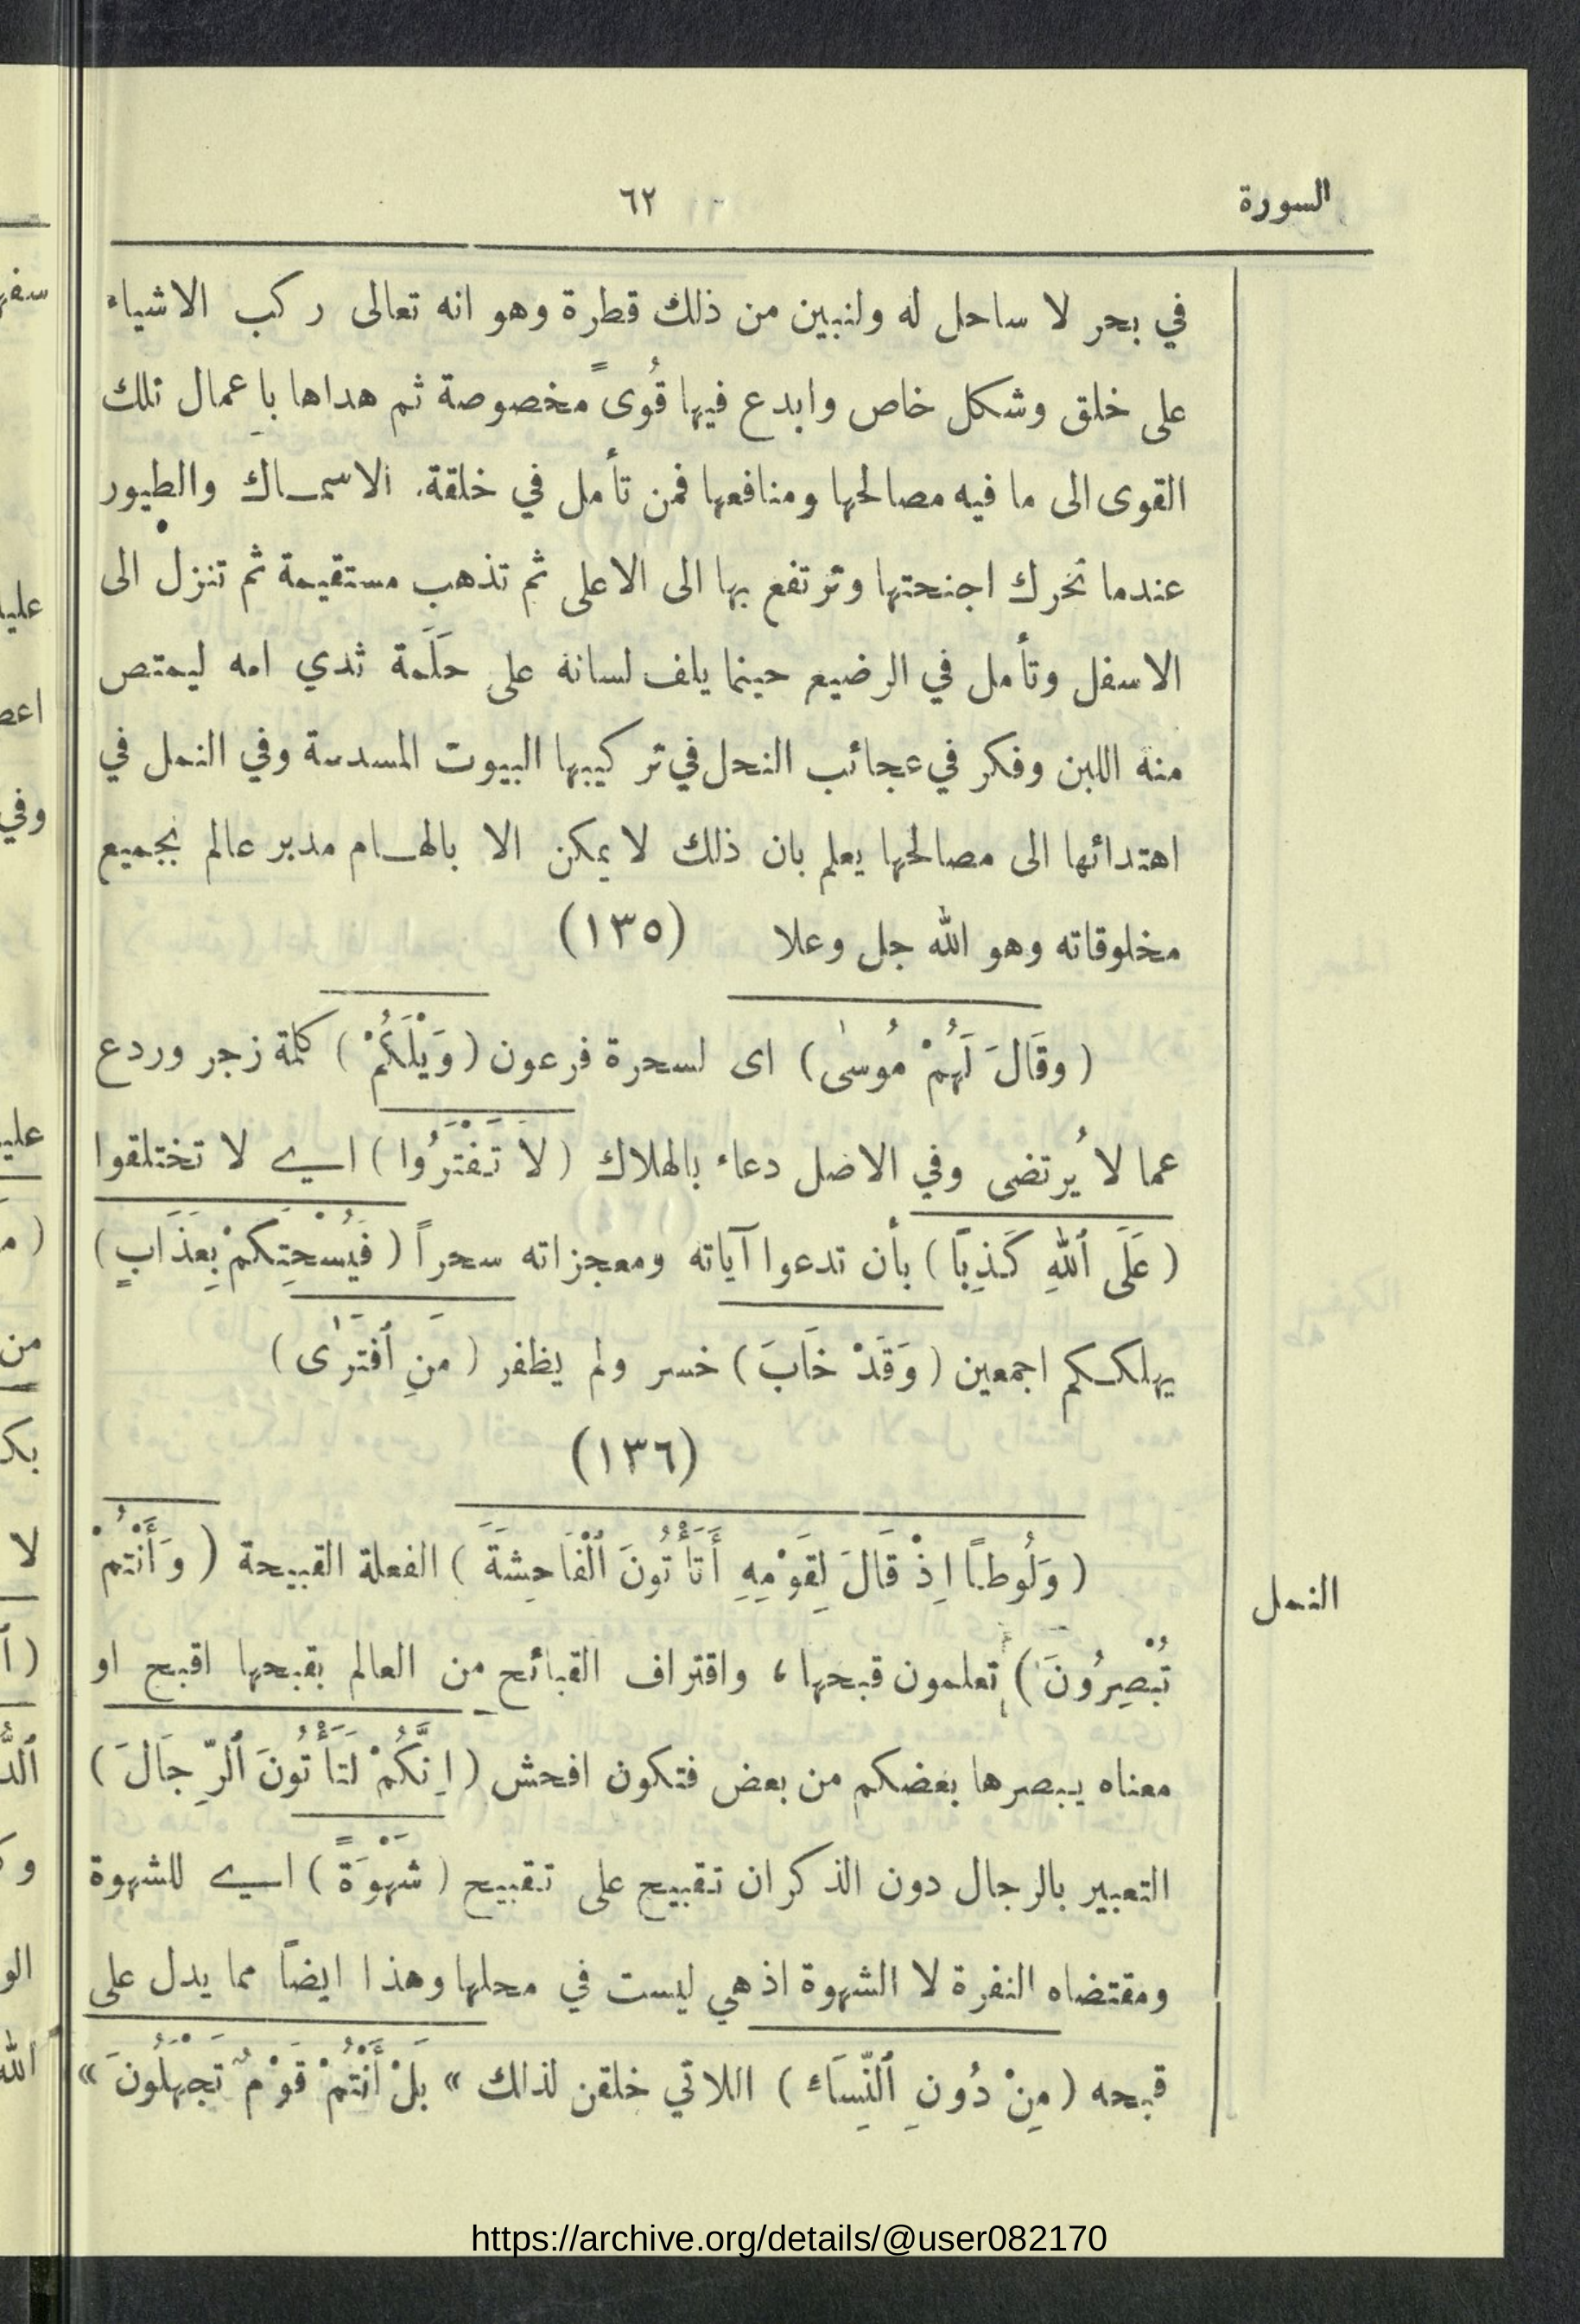 السورة
٦٢
في بحر لا ساحل له ولنبين من ذلك قطرة وهو انه تعالى ركب الاشياء
على خلق وشكل خاص وابدع فيها قُوىً مخصوصة ثم هداها باِعمال تلك
القوى الى ما فيه مصالحها ومنافعها فمن تأمل في خلقة. الاسمـاك والطيور
عندما تحرك اجنحتها وترتفع بها الى الاعلى ثم تذهب مستقيمة ثم تنزل الى
الاسفل وتأمل في الرضيع حينما يلف لسانه على حَلَمة ثدي امه ليمتص
منه اللبن وفكر في عجائب النحل في تركيبها البيوت المسدسة وفي النمل في
اهتدائها الى مصالحها يعلم بان ذلك لا يمكن الا بالهـام مدبر عالم بجميع
مخلوقاته وهو الله جل وعلا (١٣٥)
(وقَالَ لَهُمْ مُوسٰى) اى لسحرة فرعون (وَيْلَكُمْ) كلمة زجر وردع
عما لا يُرتضى وفي الاصل دعاء بالهلاك (لاَ تَفْتَرُوا) اي لا تختلقوا
(عَلَى ٱللهِ كَذِبًا) بأن تدعوا آياته ومعجزاته سحراً (فَيُسْحِتَكُمْ بِعَذَابٍ)
يهلككم اجمعين (وَقَدْ خَابَ) خسر ولم يظفر (مَنِ ٱفْتَرٰى)
(١٣٦)
(وَلُوطًا اِذْ قَالَ لِقَوْمِهِ أَتَأْتُونَ ٱلْفَاحِشَةَ) الفعلة القبيحة (وَأَنْتُمْ
النمل
تُبْصِرُونَ) تعلمون قبحها، واقتراف القبائح من العالم بقبحها اقبح او
معناه يبصرها بعضكم من بعض فتكون افحش (اِنَّكُمْ لَتَأْتُونَ ٱلرِّجَالَ)
التعبير بالرجال دون الذكران تقبيح على تقبيح (شَهْوَةً) اي للشهوة
ومقتضاه النفرة لا الشهوة اذ هي ليست في محلها وهذا ايضاً مما يدل على
قبحه (مِنْ دُونِ ٱلنِّسَاءِ) اللاتي خلقن لذلك » بَلْ أَنْتُمْ قَوْمٌ تَجْهَلُونَ «
https://archive.org/details/@user082170